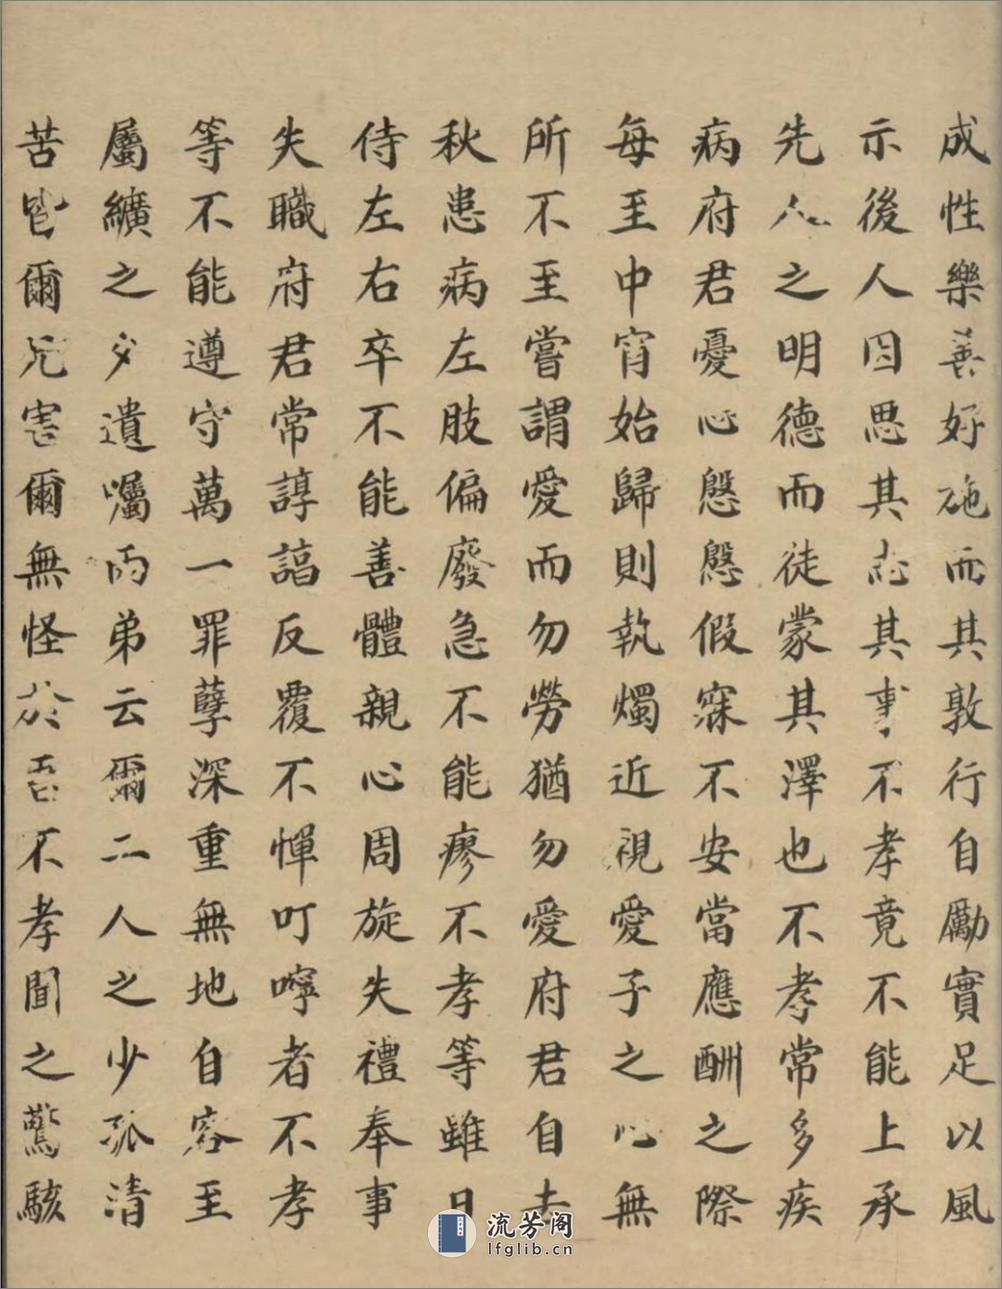 成性樂善好施而其敦行自勵實足以風
示後人因思其志其事不孝竟不能上承
先人之明德而徒蒙其澤也不孝常多疾
病府君憂心慇慇假寐不安當應酬之際
每至中宵始歸則執燭近視愛子之心無
所不至嘗謂愛而勿勞猶勿愛府君自去
秋患病左肢偏廢急不能瘳不孝等雖日
侍左右卒不能善體親心周旋失禮奉事
失職府君常諄諄誥反覆不憚叮嚀者不孝
等不能遵守萬一罪孽深重無地自容至
屬纊之夕遺囑兩弟云爾二人之少孤清
苦皆爾兄害爾無怪於吾不孝聞之驚駭
流芳阁
lfglib.cn